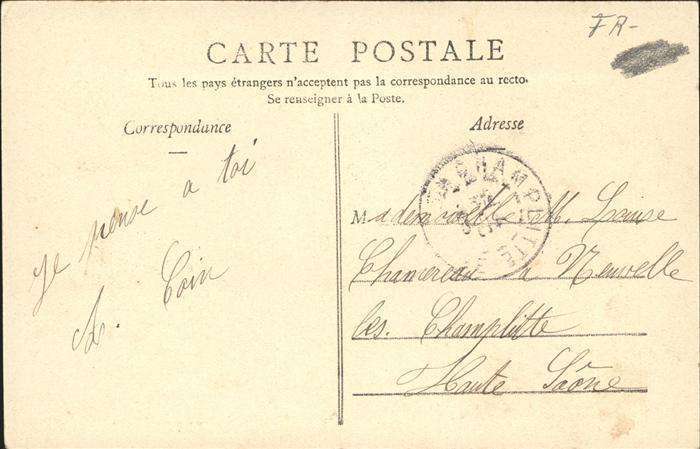 FR-
CARTE POSTALE
Tous les pays étrangers n'acceptent pas la correspondance au recto.
Se renseigner à la Poste.
Correspondance
Adresse
je pense a toi
Coin
CHAMPLITTE
Mademoiselle M. Louise
Chancereau a Neuvelle
les Champlitte
Haute Saône